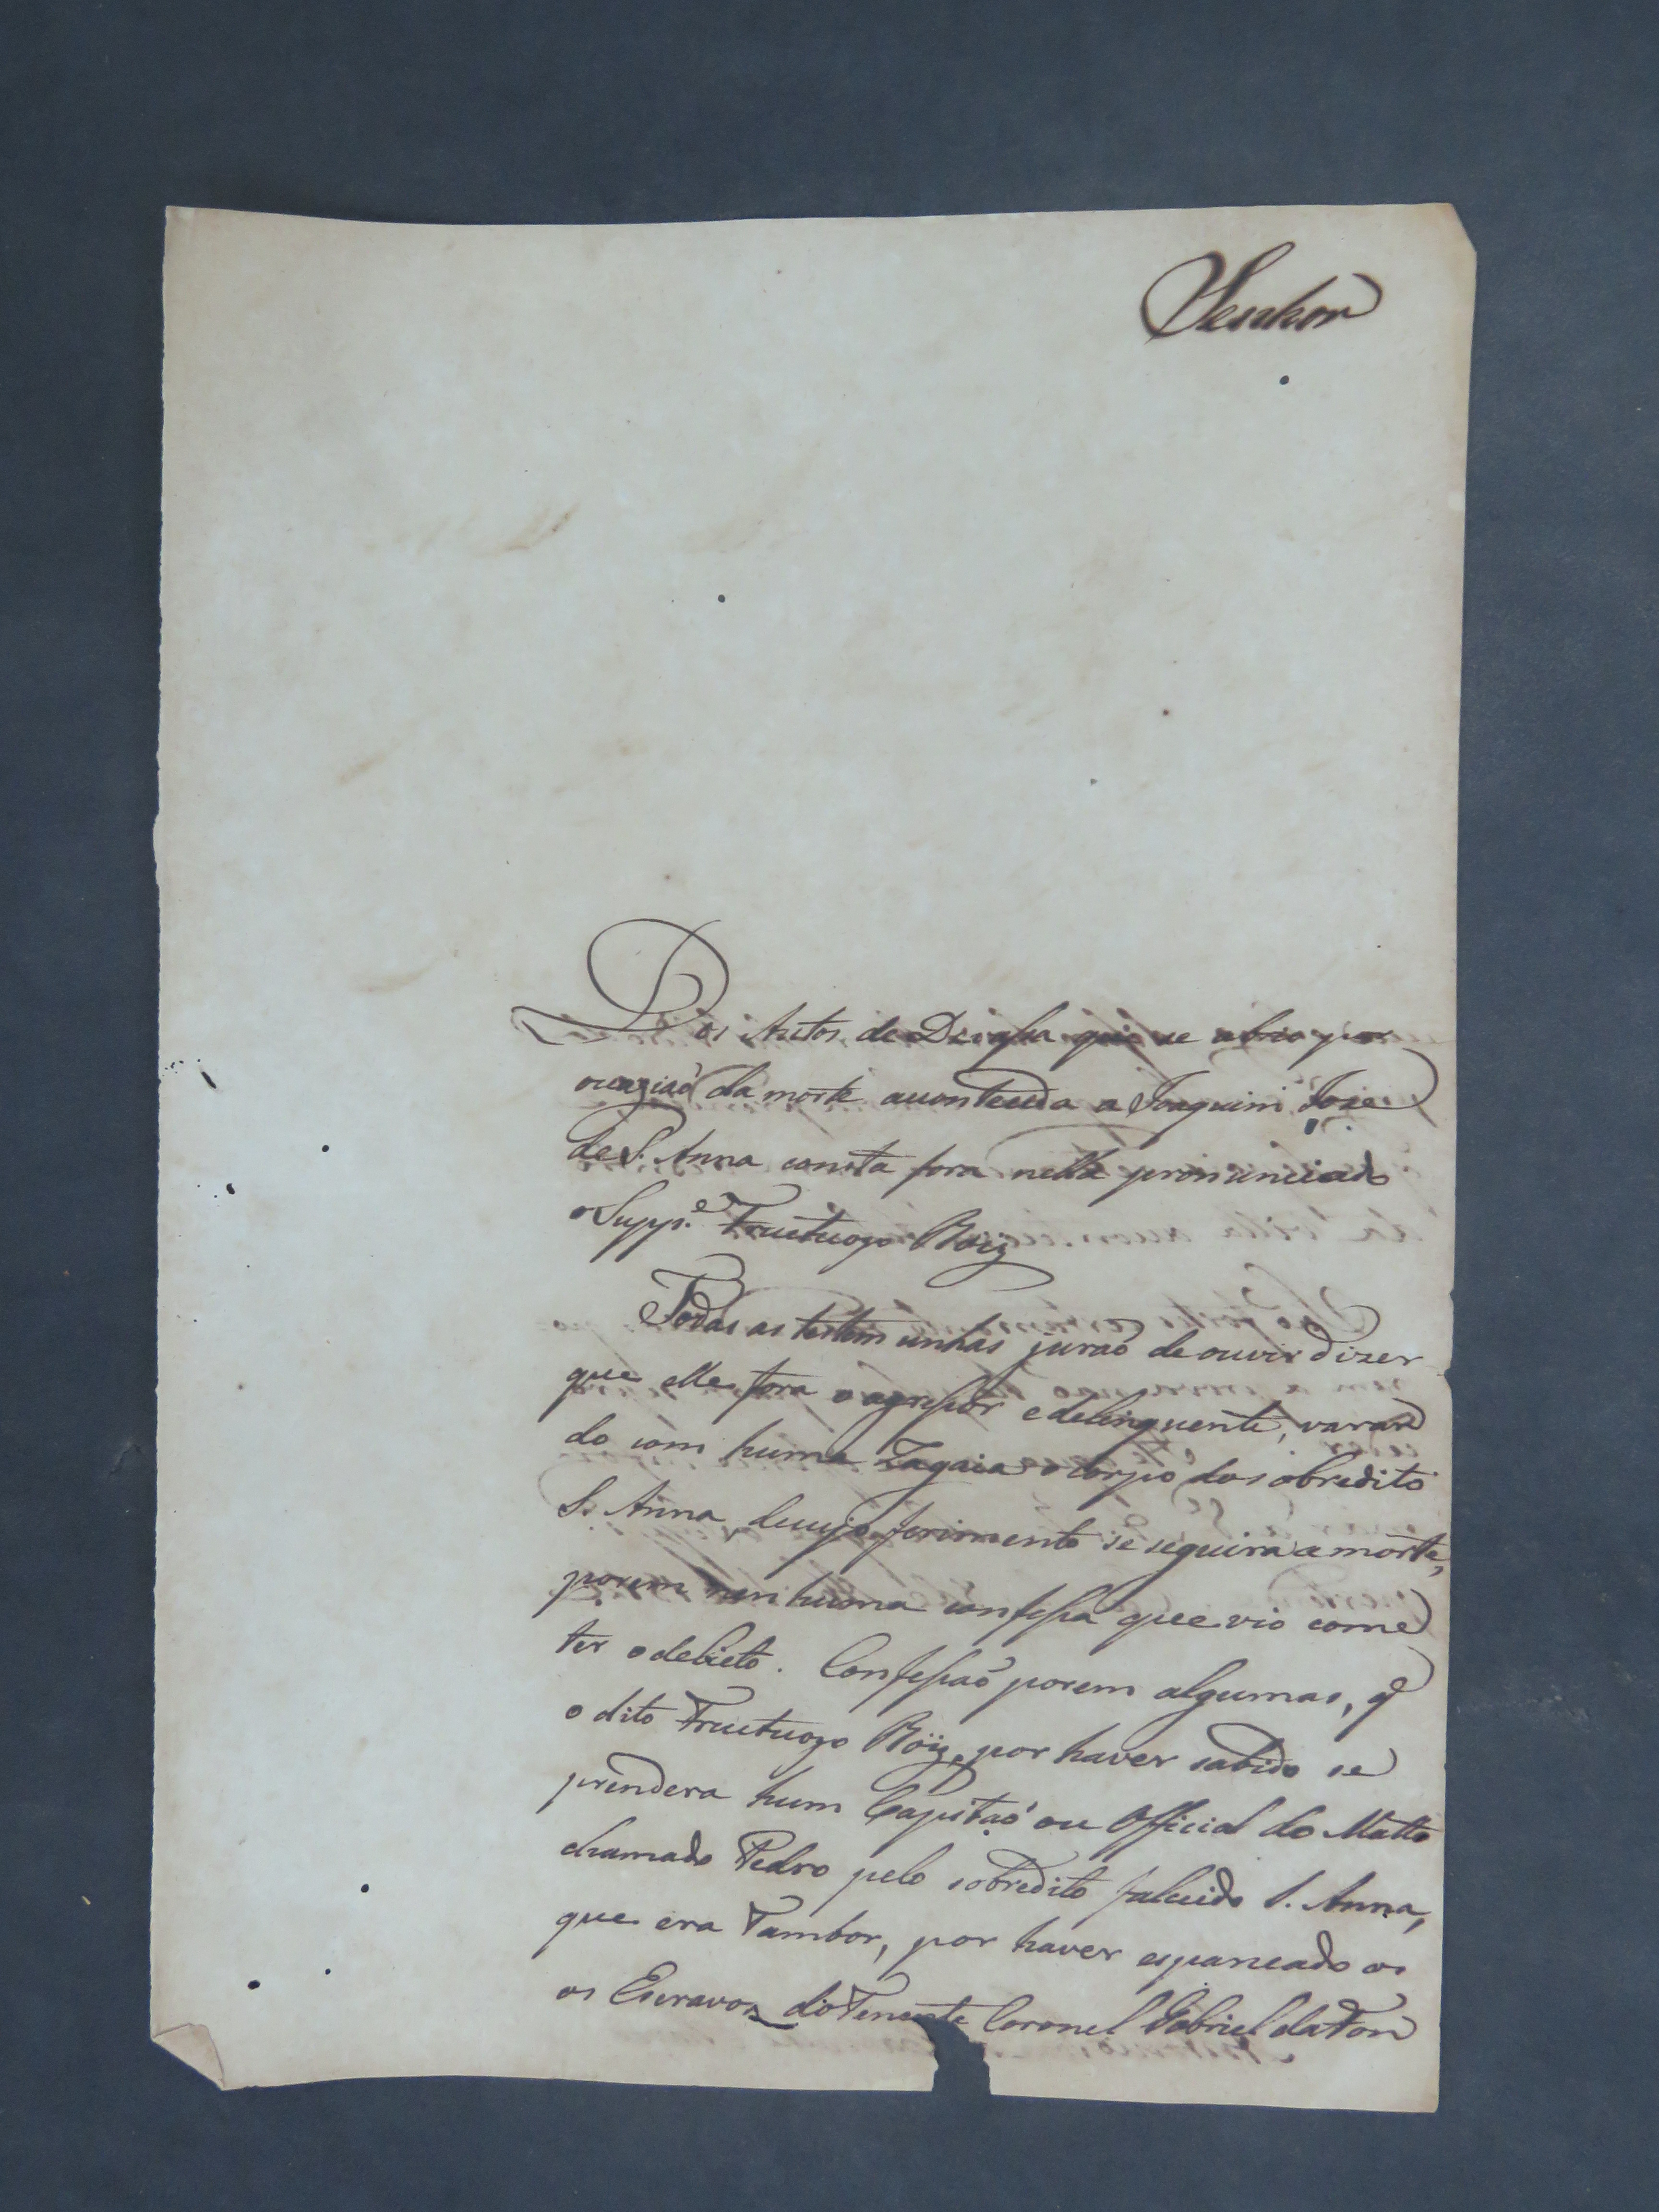 Senhor
Dos Autos de Devassa que se abrio por
occaziaõ da morte acontecida a Joaquim Jose
de S. Anna consta fora nella pronunciado
o Supp.e Fructuozo Roiz
Todas as testemunhas juraõ de ouvir dizer
que elle fora o agressor e delinquente, varan
do com huma Zagaia o corpo do sobredito
S. Anna, de cujo ferimento se seguira a morte,
porem nenhuma confessa que vio come
ter o delicto. Confessaõ porem algumas, q
o dito Fructuozo Roiz, por haver sabido se
prendera hum Capitaõ ou Official do Matto
chamado Pedro pelo sobredito falecido S. Anna,
que era Tambor, por haver espancado os
os Escravos do Tenente Coronel Gabriel da Fon